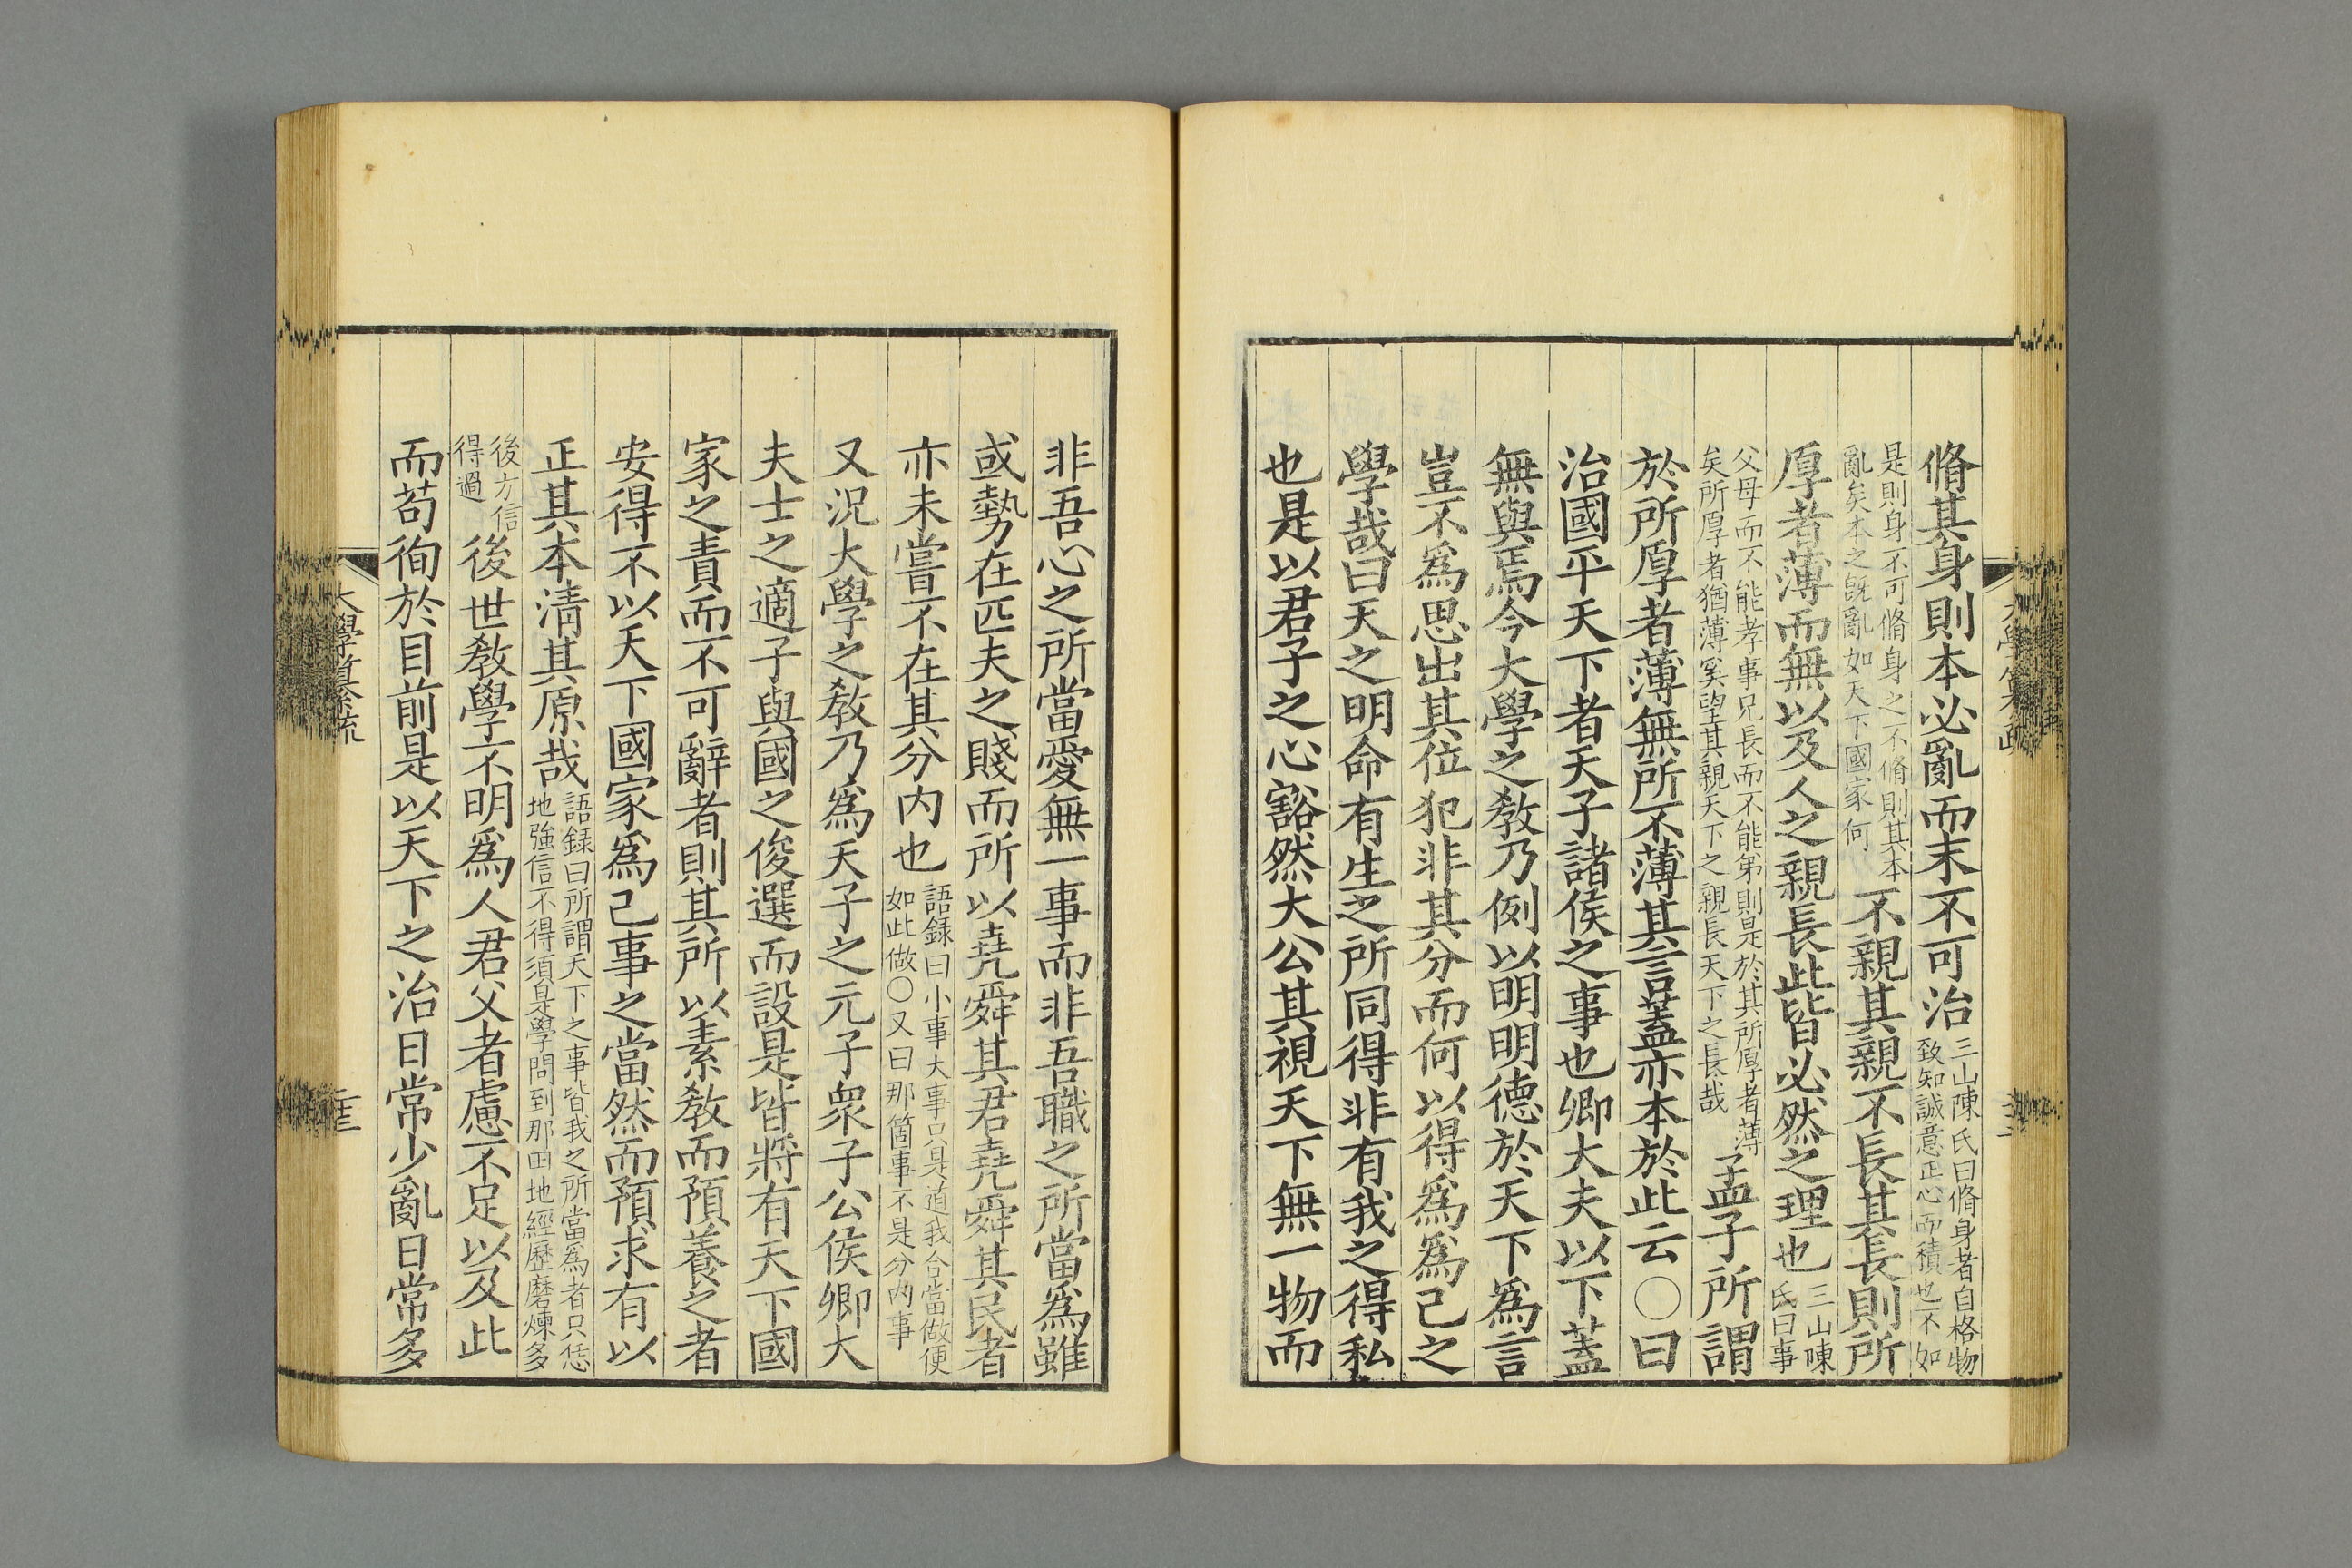 脩其身則本必亂而末不可治三山陳氏曰脩身者自格物
致知誠意正心而積也不如
是則身不可脩身之不脩則其本
亂矣本之既亂如天下國家何不親其親不長其長則所
厚者薄而無以及人之親長此皆必然之理也三山陳
氏曰事
父母而不能孝事兄長而不能弟則是於其所厚者薄
矣所厚者猶薄奚望其親天下之親長天下之長哉孟子所謂
於所厚者薄無所不薄其言蓋亦本於此云〇曰
治國平天下者天子諸侯之事也卿大夫以下蓋
無與焉今大學之教乃例以明明德於天下為言
豈不為思出其位犯非其分而何以得為為己之
學哉曰天之明命有生之所同得非有我之得私
也是以君子之心豁然大公其視天下無一物而
非吾心之所當愛無一事而非吾職之所當為雖
或勢在匹夫之賤而所以堯舜其君堯舜其民者
亦未嘗不在其分内也語録曰小事大事只是道我合當做便
如此做〇又曰那箇事不是分内事
又況大學之教乃為天子之元子衆子公侯卿大
夫士之適子與國之俊選而設是皆將有天下國
家之責而不可辭者則其所以素教而預養之者
安得不以天下國家為己事之當然而預求有以
正其本清其原哉語録曰所謂天下之事皆我之所當為者只恁
地強信不得須是學問到那田地經歷磨煉多
後方信
得過後世教學不明為人君父者慮不足以及此
而苟徇於目前是以天下之治日常少亂日常多